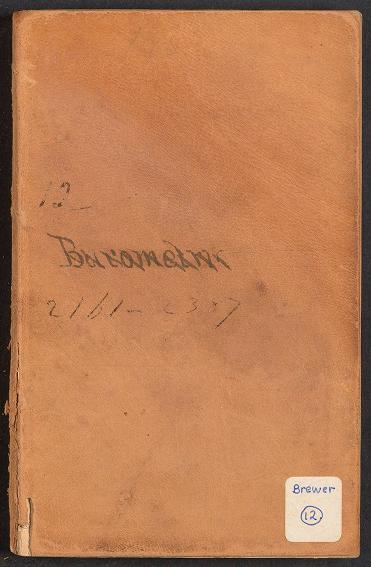 12
Barometric
2161-2387
Brewer
12